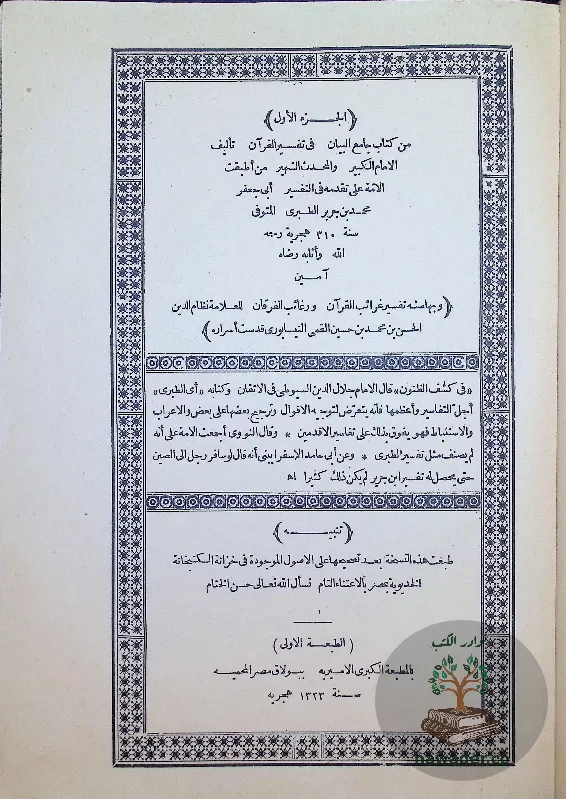 (الجزء الأول)
من كتاب جامع البيان في تفسير القرآن تأليف
الامام الكبير والمحدث الشهير من أطبقت
الامة على تقدمه في التفسير أبي جعفر
محمد بن جرير الطبرى المتوفى
سنة ٣١٠ هجرية رحمه
الله وأثابه رضاه
آمين
(وبهامشه تفسير غرائب القرآن ورغائب الفرقان للعلامة نظام الدين
الحسن بن محمد بن حسين القمى النيسابورى قدست أسراره)
«فى كشف الظنون» قال الامام جلال الدين السيوطى فى الاتقان وكتابه «أى الطبرى»
أجل التفاسير وأعظمها فانه يتعرض لتوجيه الاقوال وترجيح بعضها على بعض والاعراب
والاستنباط فهو يفوق بذلك على تفاسير الاقدمين * وقال النووى أجمعت الامة على أنه
لم يصنف مثل تفسير الطبرى * وعن أبى حامد الاسفراينى أنه قال لو سافر رجل الى الصين
حتى يحصل له تفسير ابن جرير لم يكن ذلك كثيرا اه
(تنبيه)
طبعت هذه النسخة بعد تصحيحها على الاصول الموجودة فى خزانة الكتبخانة
الخديوية بمصر بالاعتناء التام نسأل الله تعالى حسن الختام
(الطبعة الاولى)
بالمطبعة الكبرى الاميرية ببولاق مصر المحمية
سنة ١٣٢٣ هجرية
نوادر الكتب